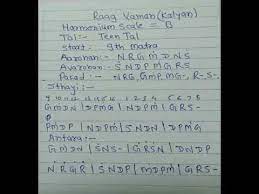 Raag Yaman (Kalyan)
Harmonium Scale = B
Tal:- Teen Tal
Start: 9th matra
Aarohan:- N R G M D N S
Avarohan:- S N D P M G R S
Pakad:- NRG, GMP, MG, -R-S-
Sthayi:-
9 10 11 12 13 14 15 16 1 2 3 4 5 6 7 8
GMDN | DPMG | MDPM | GRS-
PMDP | NDPM | SNDN | DPMG
Antara:-
GMDN | SNS- | GRSN | DNDP
NRGR | SNDP | MDPM | GRS-